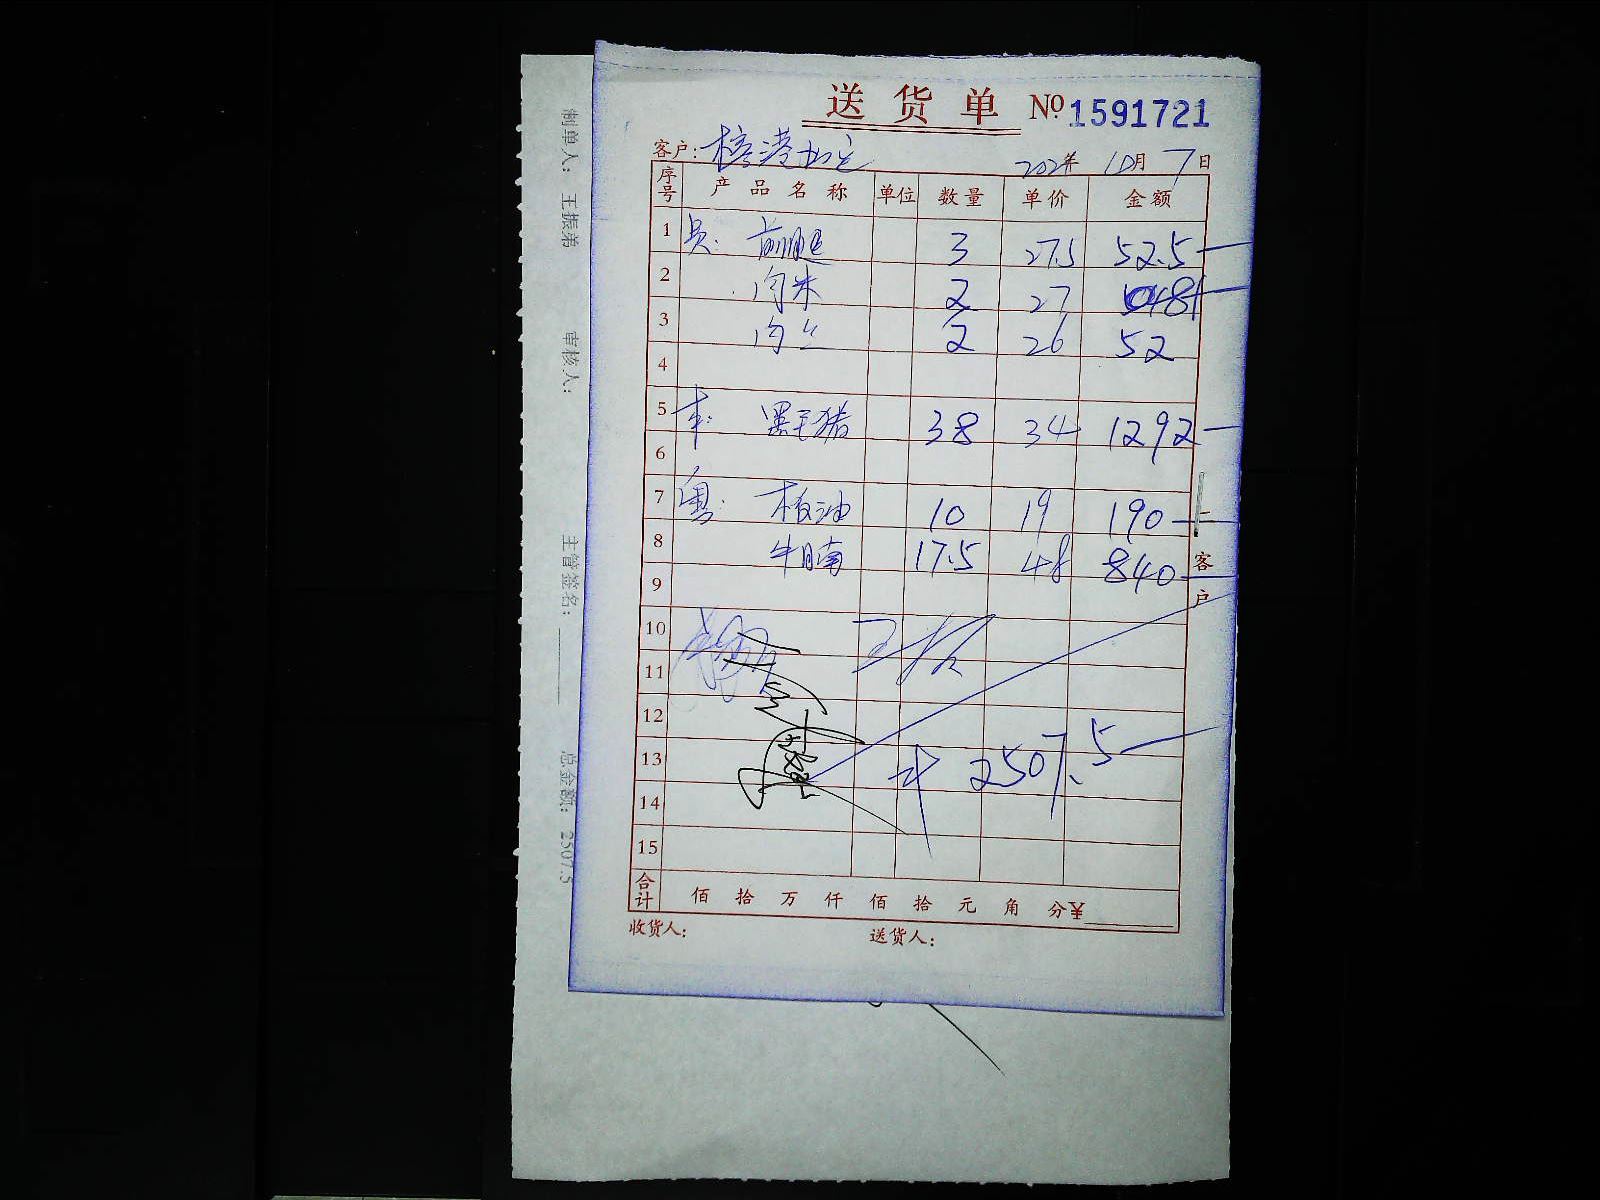 送货单 №1591721
客户: 2024年 10月 7日
序号 产品名称 单位 数量 单价 金额
1 前腿 3 27.5 52.5
2 肉末 2 27
3 肉丝 2 26 52
4
5 黑毛猪 38 34 1292
6
7 粤: 板油 10 19 190
8 牛腩 17.5 48 840
9
10
11
12
13 计 2507.5
14
15
合计 佰 拾 万 仟 佰 拾 元 角 分 ¥
收货人: 送货人:
二 客户
制单人: 王振弟 审核人: 主管签名: 总金额: 2507.5